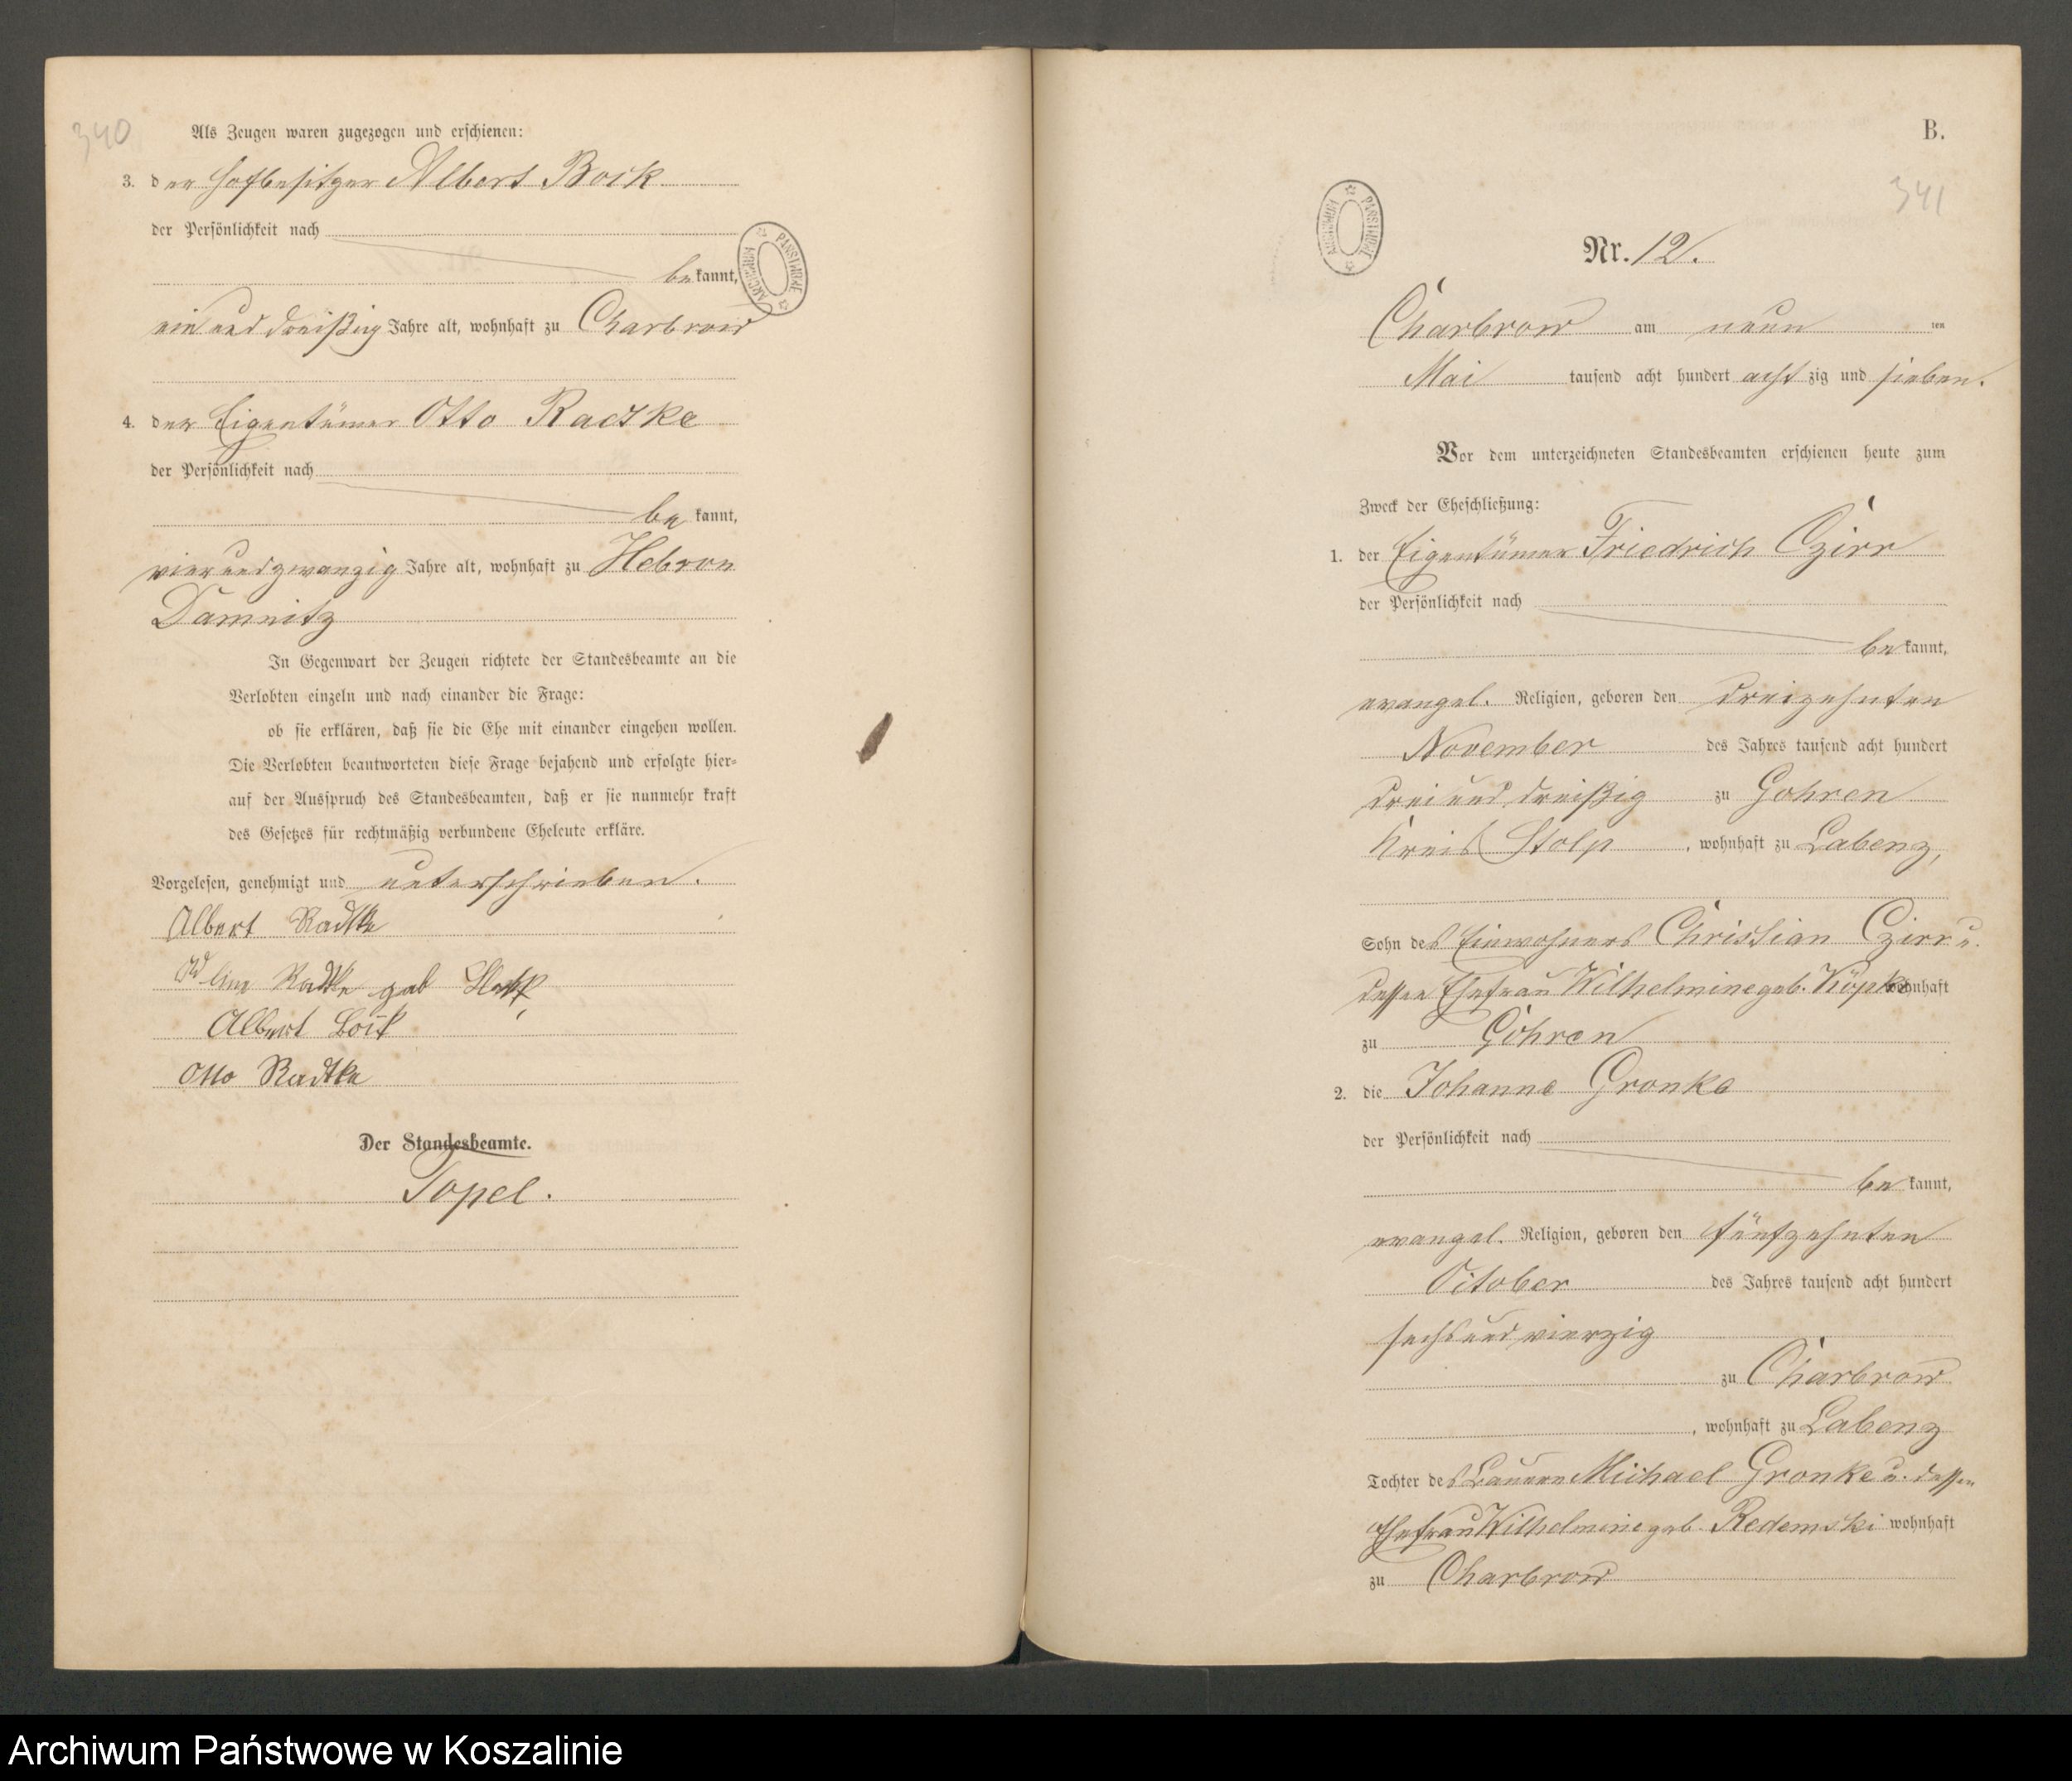 340
Als Zeugen waren zugezogen und erschienen:
3. der Hofbesitzer Albert Bock
der Persönlichkeit nach
bekannt,
ein und dreißig Jahre alt, wohnhaft zu Charbrow
4. der Eigentümer Otto Radtke
der Persönlichkeit nach
be kannt,
vier und zwanzig Jahre alt, wohnhaft zu Hebron
Damnitz
In Gegenwart der Zeugen richtete der Standesbeamte an die
Verlobten einzeln und nach einander die Frage:
ob sie erklären, daß sie die Ehe mit einander eingehen wollen.
Die Verlobten beantworteten diese Frage bejahend und erfolgte hier-
auf der Ausspruch des Standesbeamten, daß er sie nunmehr kraft
des Gesetzes für rechtmäßig verbundene Eheleute erkläre.
Vorgelesen, genehmigt und unterschrieben.
Albert Radtke
Radtke geb
Albert Bock
Otto Radtke
Der Standesbeamte.
Topel.
ARCHIWUM PAŃSTWOWE
B.
341
ARCHIWUM PAŃSTWOWE
Nr. 12.
Charbrow am neun ten
Mai tausend acht hundert acht zig und sieben.
Vor dem unterzeichneten Standesbeamten erschienen heute zum
Zweck der Eheschließung:
1. der Eigentümer Friedrich Czirr
der Persönlichkeit nach
be kannt,
evangel. Religion, geboren den dreizehnten
November des Jahres tausend acht hundert
drei und dreißig zu Gohren
Kreis Stolp, wohnhaft zu Labenz,
Sohn des Einwohners Christian Czirr u.
dessen Ehefrau Wilhelmine geb. Köpke wohnhaft
zu Gohren
2. die Johanne Gronke
der Persönlichkeit nach
be kannt,
evangel. Religion, geboren den fünfzehnten
October des Jahres tausend acht hundert
sechs und vierzig
zu Charbrow
, wohnhaft zu Labenz
Tochter des Bauern Michael Gronke u. dessen
Ehefrau Wilhelmine geb. Redemski wohnhaft
zu Charbrow
Archiwum Państwowe w Koszalinie